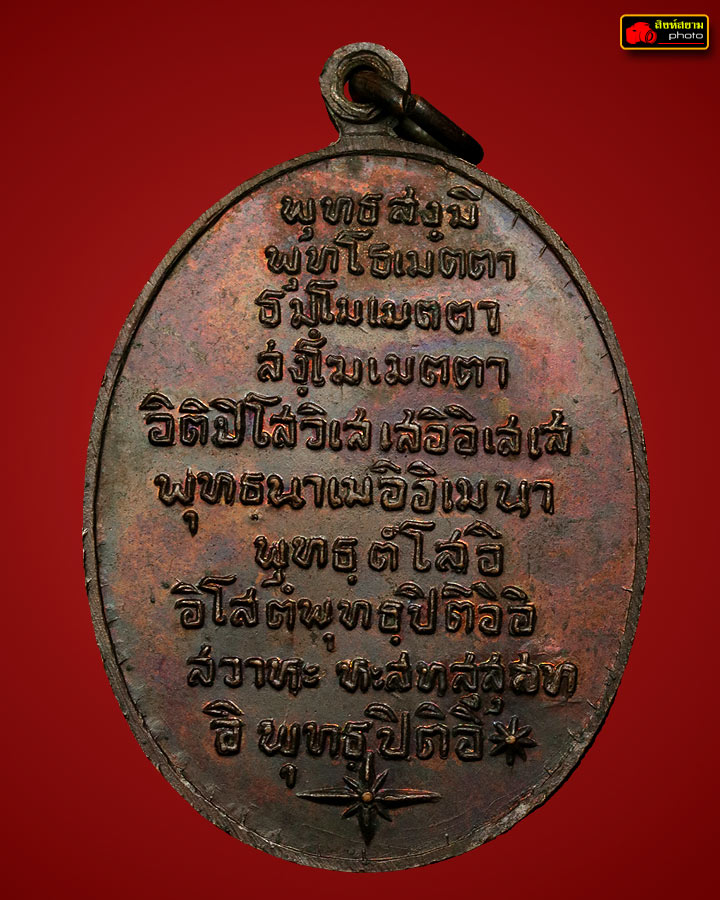 สิงห์สยาม
photo
พุทธสงฺมิ
พุทโธเมตตา
ธมฺโมเมตตา
สงฺโฆเมตตา
อิติปิโสวิเสเสอิอิเสเส
พุทธฺนาเมอิอิเมนา
พุทธฺตํโสอิ
อิโสตํพุทธฺปิติอิอิ
สวาหะ หะสทสูสุสท
อิ พุทธฺปิติอิ